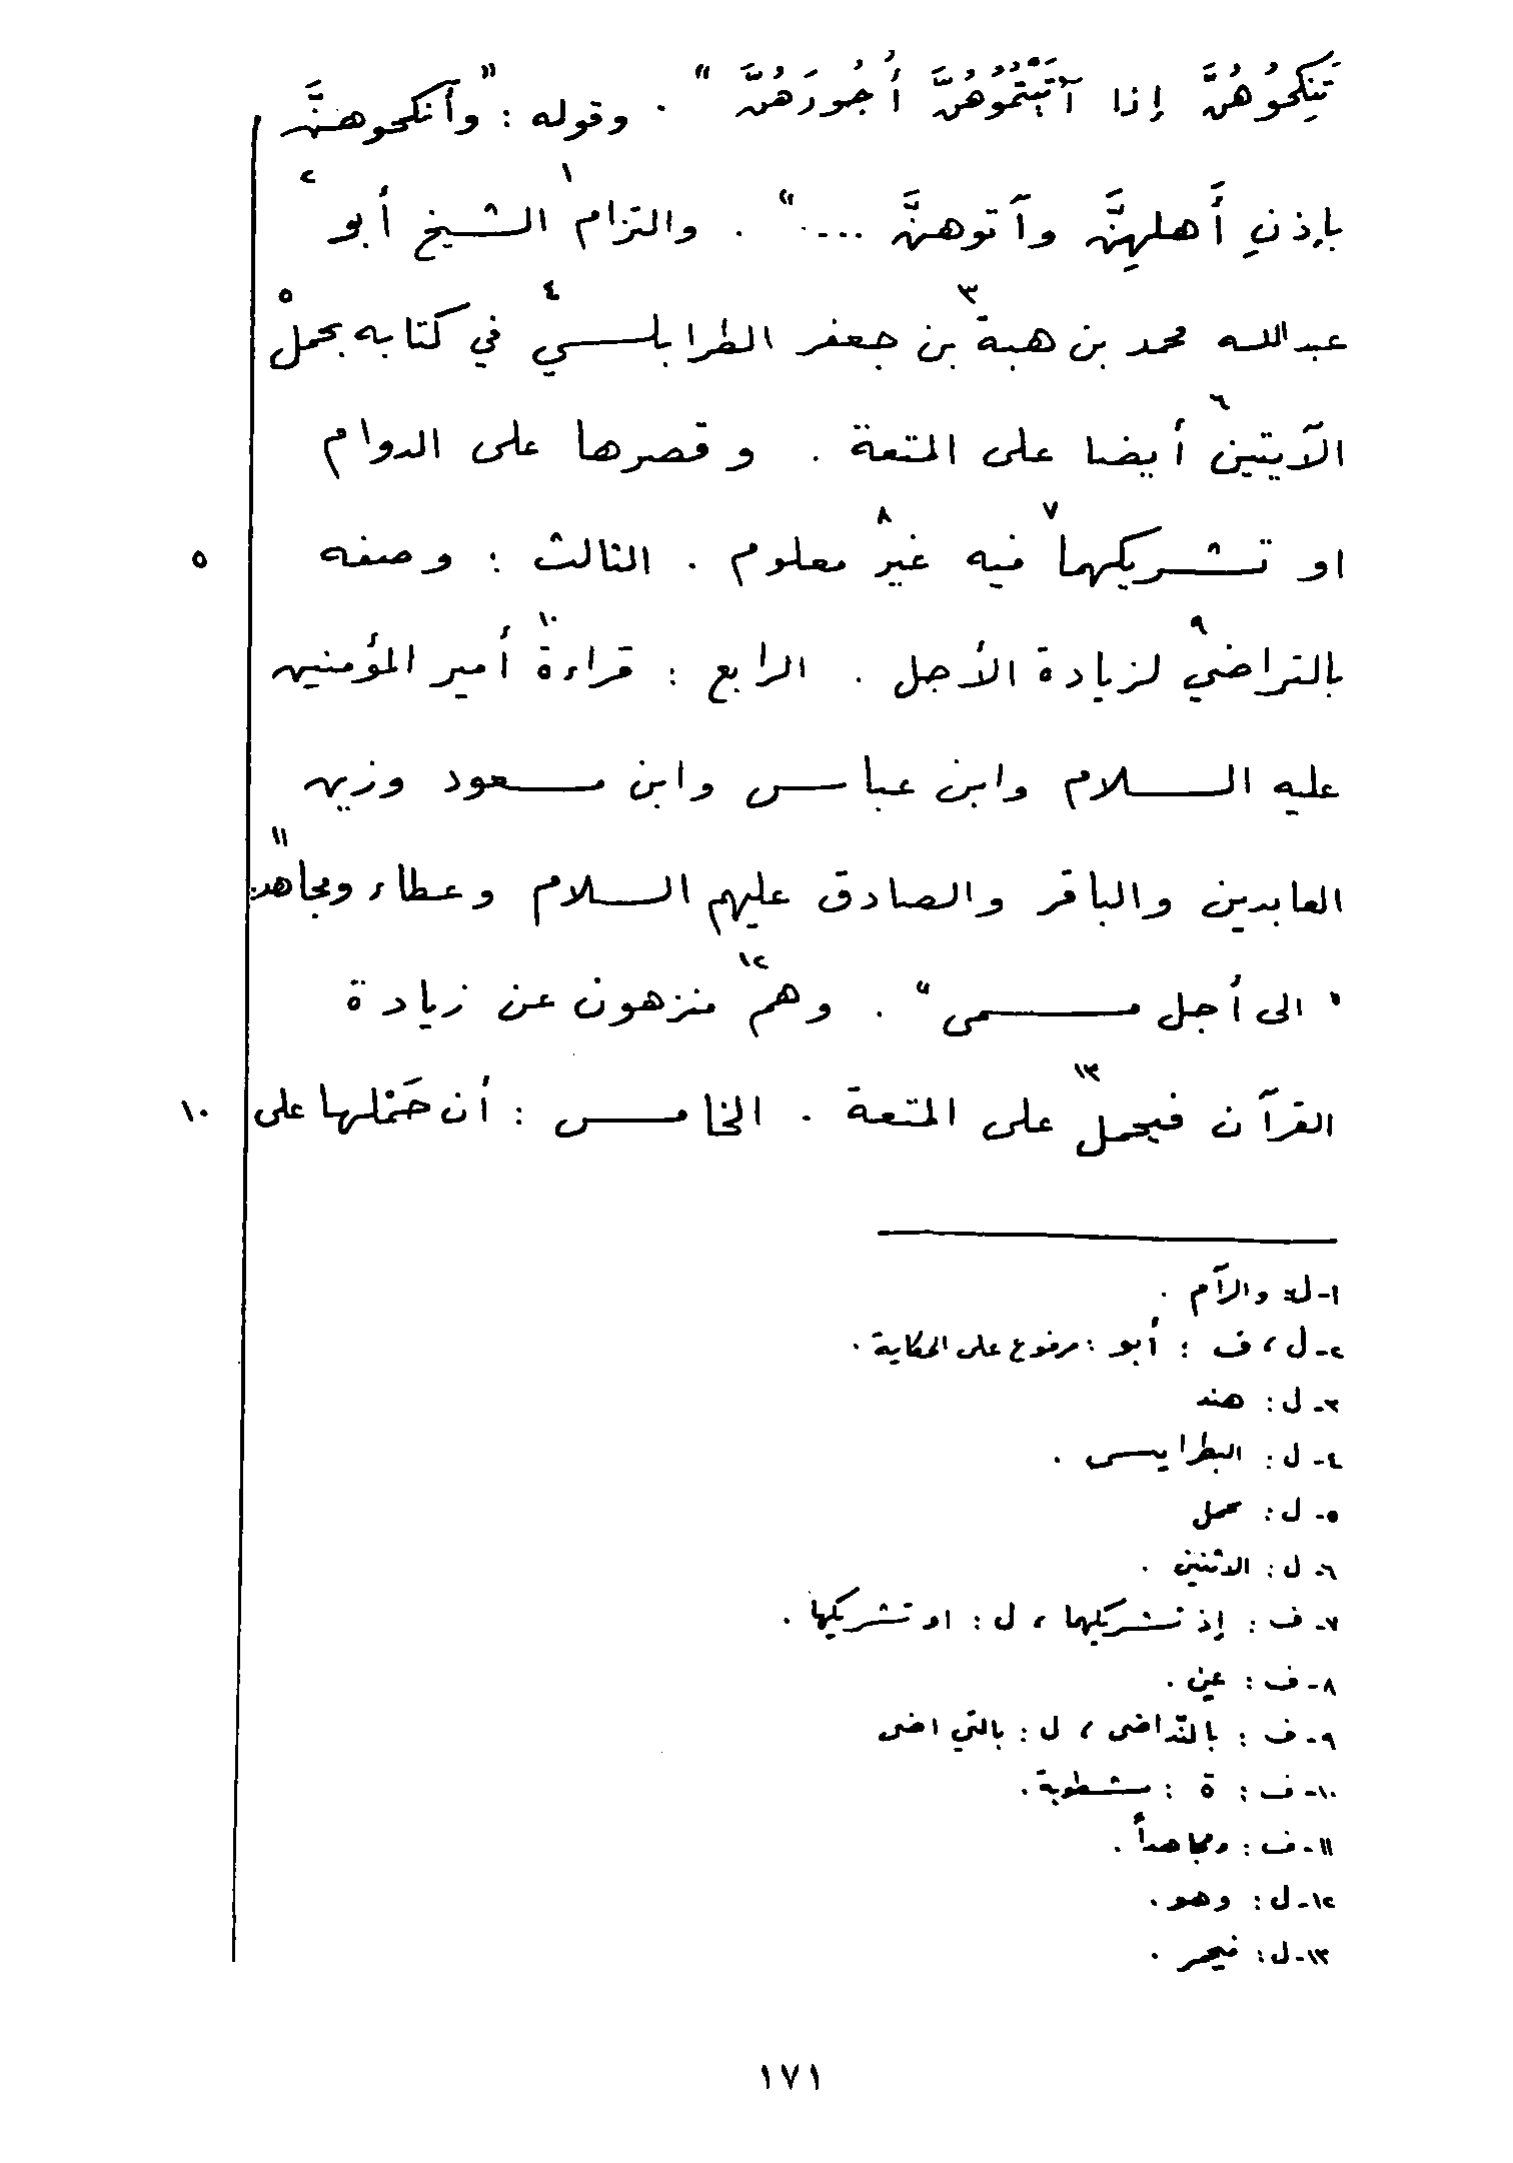 تَنِكحُوُهُنَّ إذا آتَيْتُمُوُهُنَّ أُجُورَهُنَّ " . وقوله : "وأنكحوهـنَّ
بإذنِ أَهلهِنَّ وآتوهنَّ ...." . والتزام١ الشيخ أبو٢
عبدالله محمد بن هبة٣ بن جعفر الطرابلسي٤ في كتابه بحمل٥
الآيتين٦ أيضا على المتعة . وقصرها على الدوام
او تشريكهما٧ فيه غير٨ معلوم . الثالث : وصفه ٥
بالتراضي٩ لزيادة الأجل . الرابع : قراءة١٠ أمير المؤمنين
عليه السلام وابن عباس وابن مسعود وزين
العابدين والباقر والصادق عليهم السلام وعطاء ومجاهد١١
" الى أجل مسمى" . وهم١٢ منزهون عن زيادة
القرآن فيحمل١٣ على المتعة . الخامس : أن حَمْلها على ١٠
١- ل: والآم .
٢- ل ، ف : أبو : مرفوع على الحكاية .
٣- ل : هند
٤- ل : البطرايسى .
٥- ل : محمل
٦- ل : الاثنين .
٧- ف : إذ تشريكهما ، ل : او تشريكها .
٨- ف : عين .
٩- ف : بالتّداضى ، ل : بالتي اضى
١٠- ف : ة : مشطوبة .
١١- ف : ومجاهداً .
١٢- ل : وهو .
١٣- ل : فيحمر .
١٧١